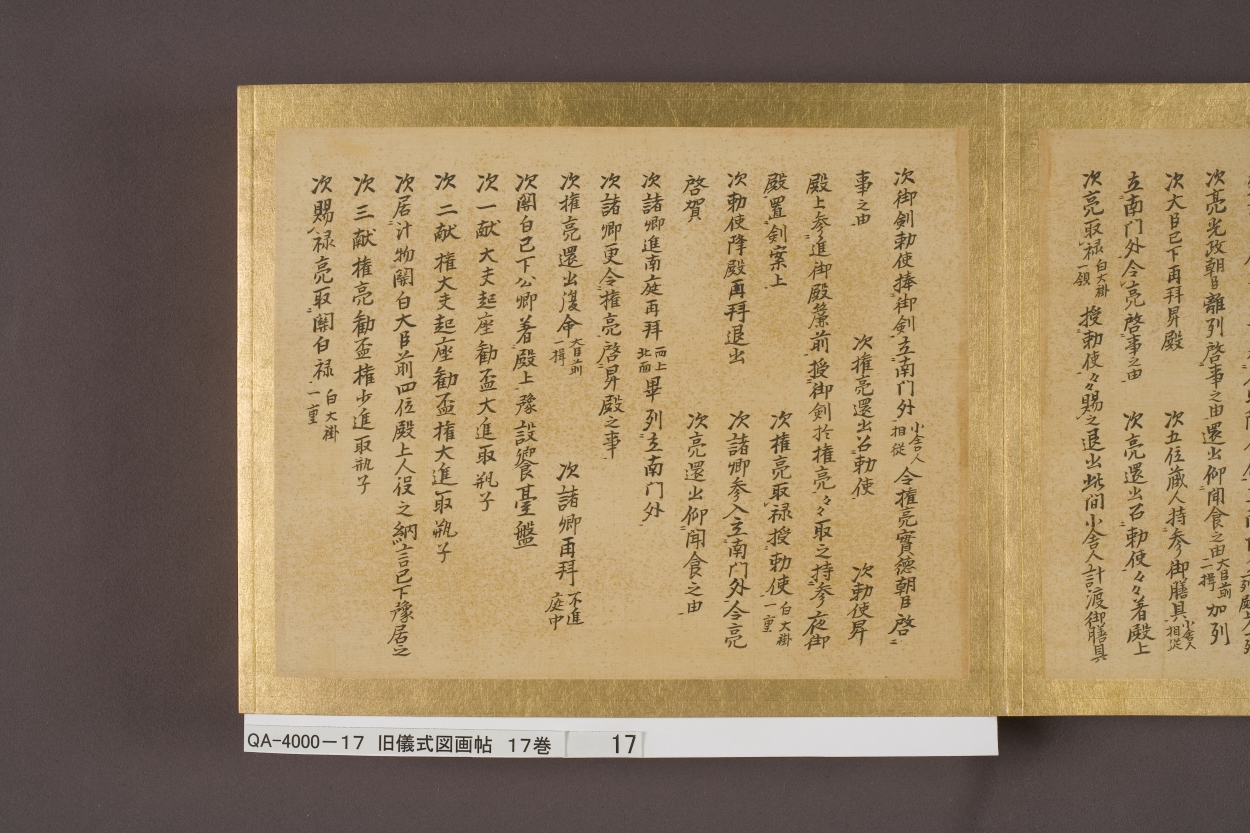 次亮光政朝臣離列啓事之由還出仰聞食之由大臣前二揖加列
次大臣已下再拜昇殿 次五位蔵人持参御膳具小舎人相従
立南门外令亮啓事之由 次亮還出召勅使々々著殿上
次亮取禄白大褂一領 授勅使々々賜之退出此間小舎人計渡御膳具
次御剣勅使捧御剣立南门外小舎人相従 令権亮實德朝臣啓
事之由 次権亮還出召勅使 次勅使昇
殿上参進御殿簾前授御剣於権亮々々取之持参夜御
殿置剣案上 次権亮取禄授勅使白大褂一重
次勅使降殿再拜退出 次諸卿参入立南门外令亮
啓賀 次亮還出仰聞食之由
次諸卿進南庭再拜西上北面畢列立南门外
次諸卿更令権亮啓昇殿之事
次権亮還出復命大臣前一揖 次諸卿再拜不進庭中
次関白已下公卿著殿上豫設饗臺盤
次一献大夫起座勧盃大進取瓶子
次二献権大夫起座勧盃権大進取瓶子
次居汁物関白大臣前四位殿上人役之納言已下豫居之
次三献権亮勧盃権少進取瓶子
次賜禄亮取関白禄白大褂一重
QA-4000-17 旧儀式図画帖 17巻 17